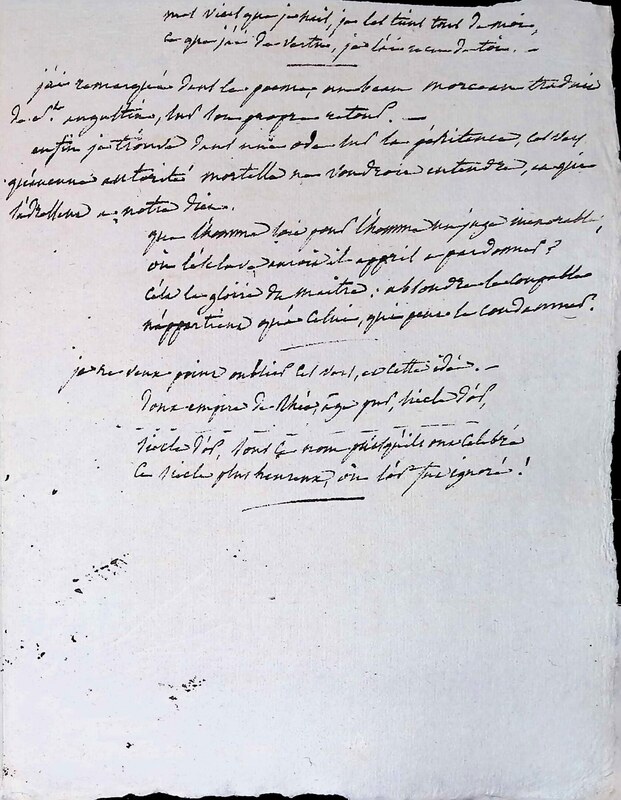 mes vices que je hais, je les tiens tous de moi,
ce que j'ai de vertus, je l'ai recu de toi. —
j'ai remarqué dans le poeme, un beau morceau traduit
de st. augustin, sur son propre retour. —
enfin je trouve dans une ode sur la pénitence, ces vers
qu'aucune autorité mortelle ne voudroit entendre, et qui
s'adressent a notre dieu.
que l'homme soit pour l'homme un juge inexorable,
ou l'esclave auroit il appris a pardonner?
c'est la gloire du maitre: absoudre le coupable
n'appartient qu'a celui, qui peut le condamner.
je ne veux point oublier ces vers, et cette idée. —
doux empire de rhée, age pur, siecle d'or,
siecle d'or, sous ce nom puisqu'ils ont celebré
ce siecle plus heureux, ou l'or fut ignoré!